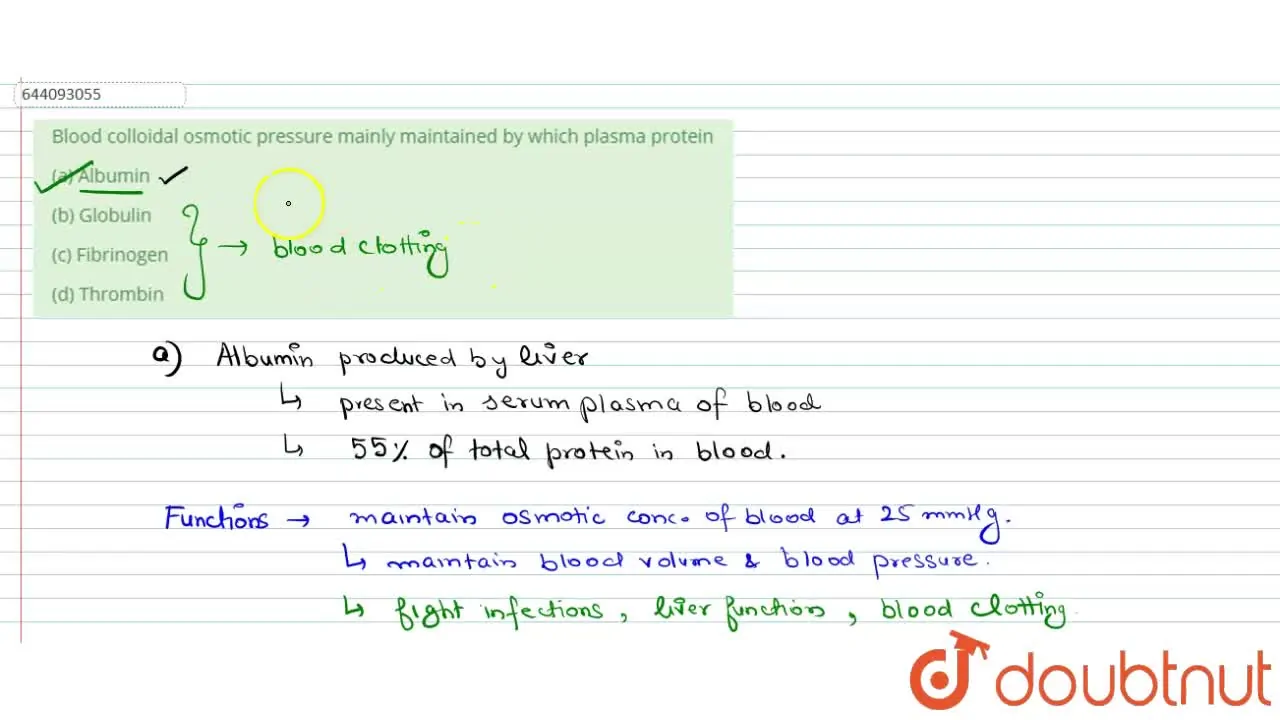 644093055
Blood colloidal osmotic pressure mainly maintained by which plasma protein
(a) Albumin
(b) Globulin
(c) Fibrinogen
(d) Thrombin
→ blood clotting
a) Albumin produced by liver
↳ present in serum plasma of blood
↳ 55% of total protein in blood.
Functions → maintain osmotic conc. of blood at 25 mmHg.
↳ maintain blood volume & blood pressure.
↳ fight infections, liver function, blood clotting.
doubtnut